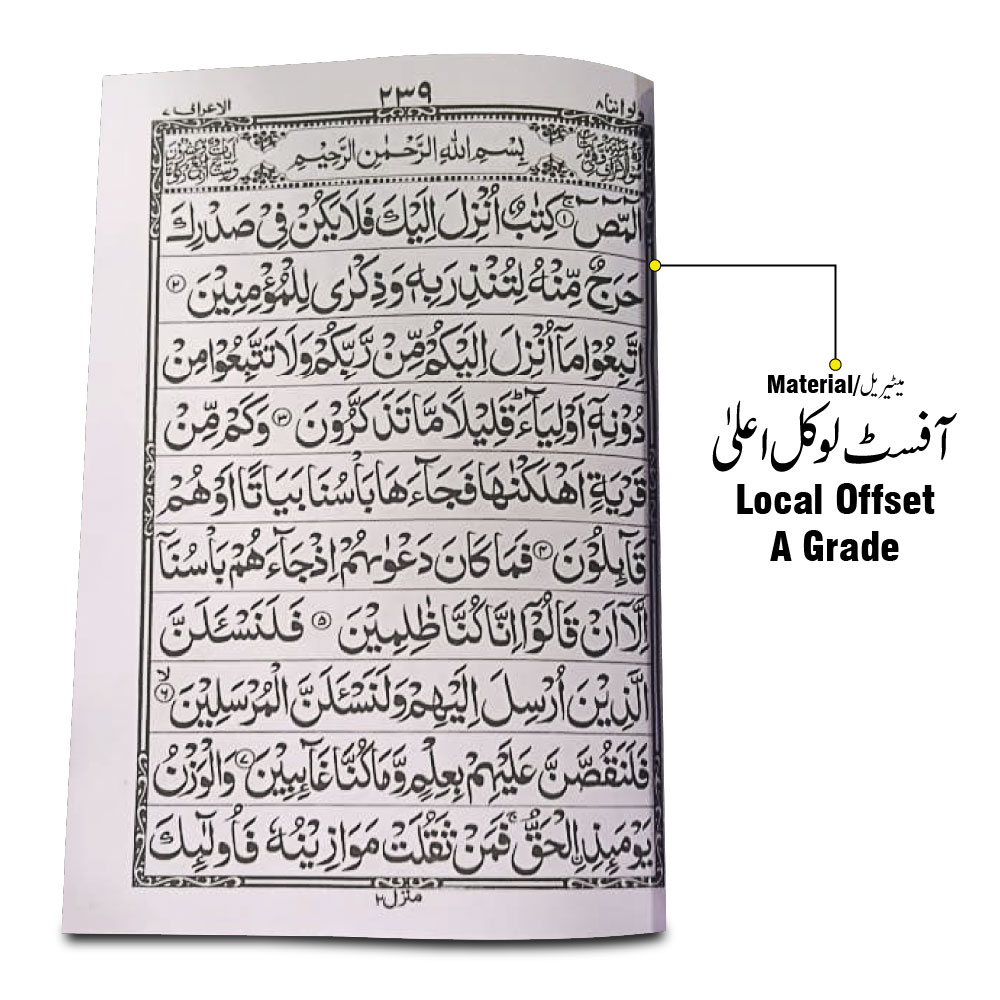 ولو اننا ۸
۲۳۹
الاعراف ۷
بِسْمِ اللهِ الرَّحْمٰنِ الرَّحِيْمِ
الٓمّٓصٓ ۚ ۱ كِتٰبٌ اُنْزِلَ اِلَيْكَ فَلَا يَكُنْ فِيْ صَدْرِكَ
حَرَجٌ مِّنْهُ لِتُنْذِرَ بِهٖ وَذِكْرٰى لِلْمُؤْمِنِيْنَ ۲
اِتَّبِعُوْا مَآ اُنْزِلَ اِلَيْكُمْ مِّنْ رَّبِّكُمْ وَلَا تَتَّبِعُوْا مِنْ
دُوْنِهٖٓ اَوْلِيَآءَ ؕ قَلِيْلًا مَّا تَذَكَّرُوْنَ ۳ وَكَمْ مِّنْ
قَرْيَةٍ اَهْلَكْنٰهَا فَجَآءَهَا بَاْسُنَا بَيَاتًا اَوْ هُمْ
قَآئِلُوْنَ ۴ فَمَا كَانَ دَعْوٰىهُمْ اِذْ جَآءَهُمْ بَاْسُنَآ
اِلَّآ اَنْ قَالُوْٓا اِنَّا كُنَّا ظٰلِمِيْنَ ۵ فَلَنَسْـَٔلَنَّ
الَّذِيْنَ اُرْسِلَ اِلَيْهِمْ وَلَنَسْـَٔلَنَّ الْمُرْسَلِيْنَ ۙ ۶
فَلَنَقُصَّنَّ عَلَيْهِمْ بِعِلْمٍ وَّمَا كُنَّا غَآئِبِيْنَ ۷ وَالْوَزْنُ
يَوْمَئِذِ ِۨالْحَقُّ ۚ فَمَنْ ثَقُلَتْ مَوَازِيْنُهٗ فَاُولٰٓئِكَ
منزل ۲
Material/میٹیریل
آفسٹ لوکل اعلیٰ
Local Offset
A Grade